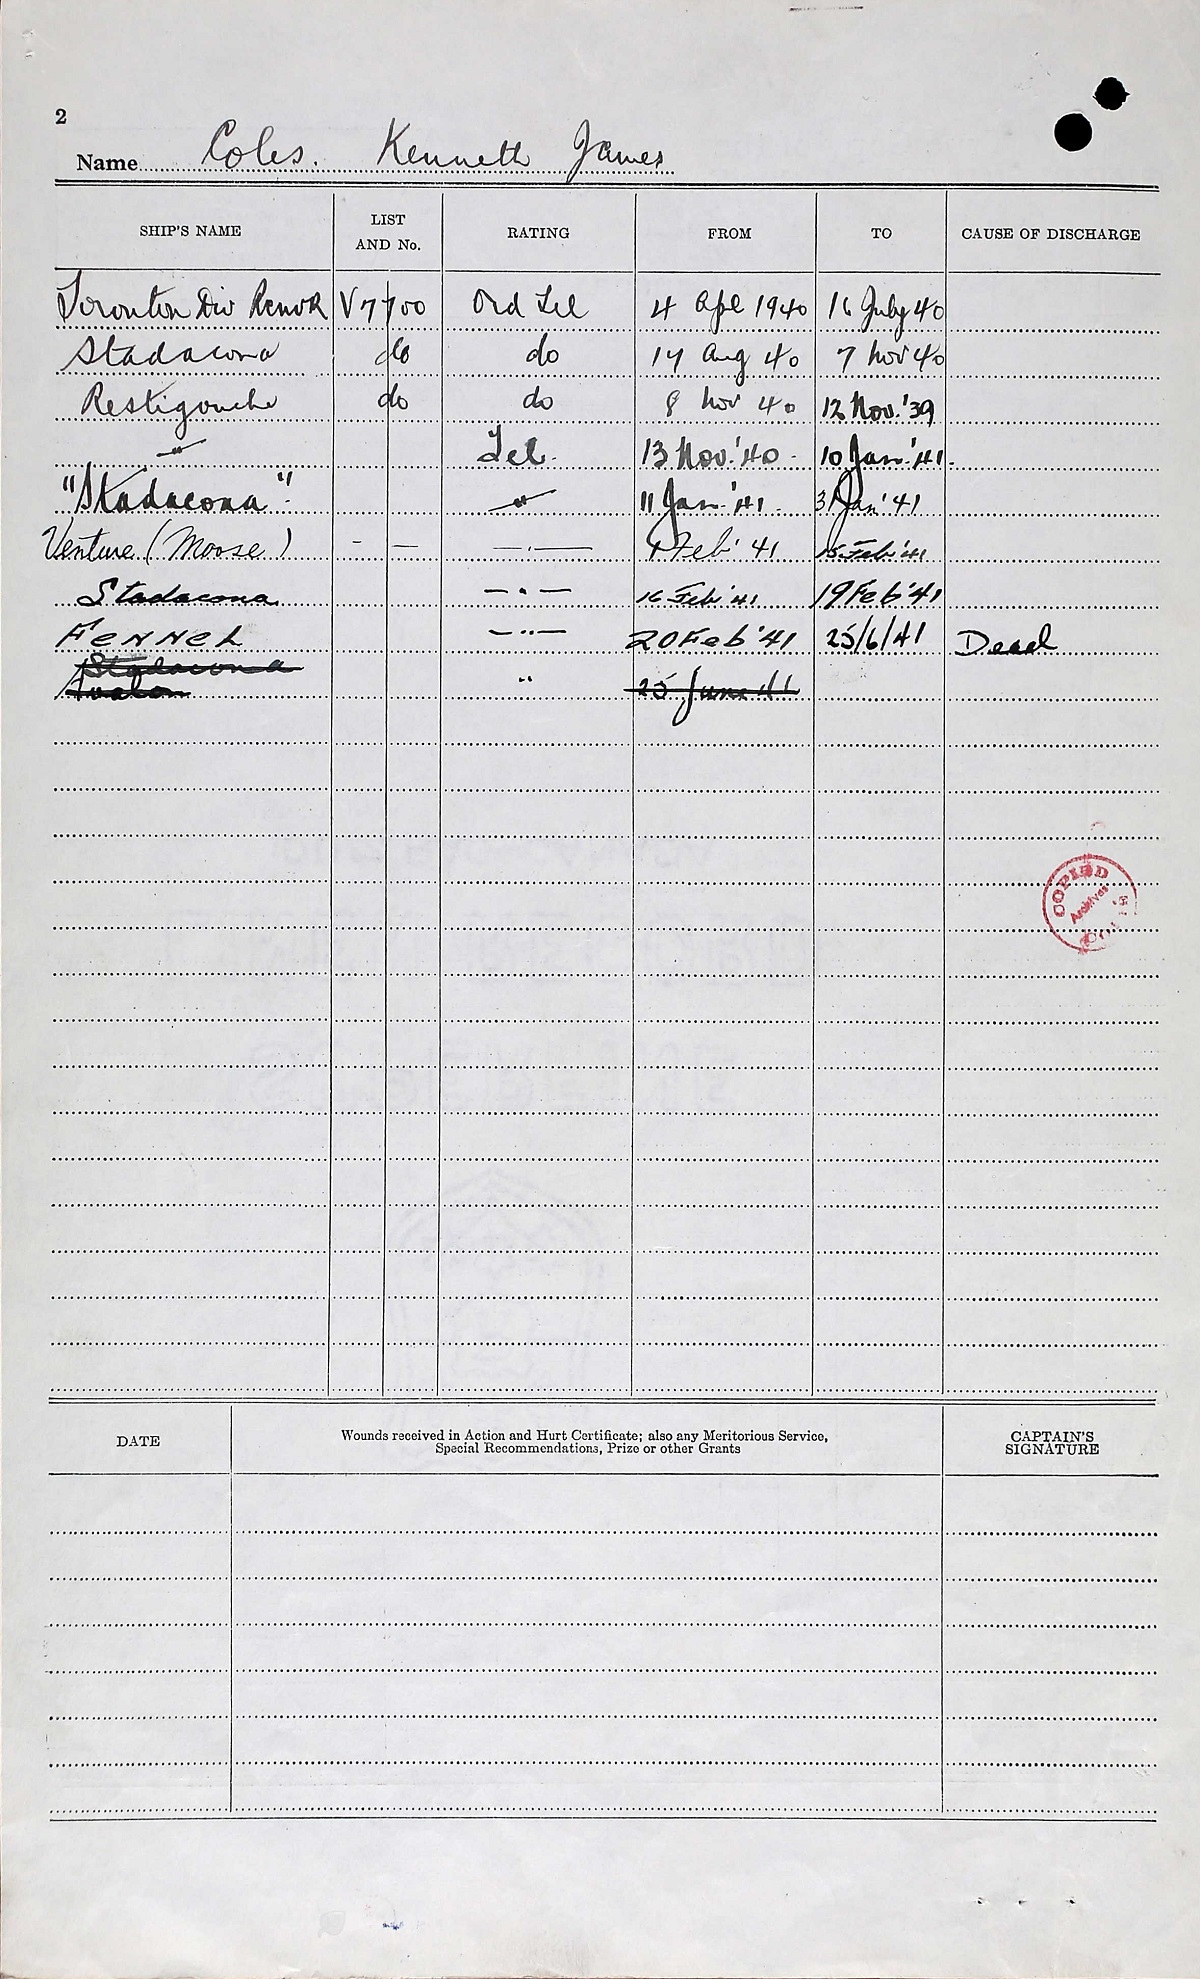 2
Name Coles. Kenneth James
SHIP'S NAME LIST AND No. RATING FROM TO CAUSE OF DISCHARGE
Toronto Div V 7700 Ord Tel 4 Apl 1940 16 July 40
Stadacona do do 17 Aug 40 7 Nov 40
Restigouche do do 8 Nov 40 12 Nov. '39
" Tel. 13 Nov. '40 - 10 Jan. '41.
"Stadacona" " 11 Jan. '41. 31 Jan' 41
Venture (Moose) - — —·— 1 Feb' 41 15 Feb '41
Stadacona —·— 16 Feb '41 19 Feb '41
Fennel —··— 20 Feb '41 25/6/41 Dead
Stadacona
Avalon " 25 June 41
COPIED
Archives
DATE Wounds received in Action and Hurt Certificate; also any Meritorious Service, Special Recommendations, Prize or other Grants CAPTAIN'S SIGNATURE